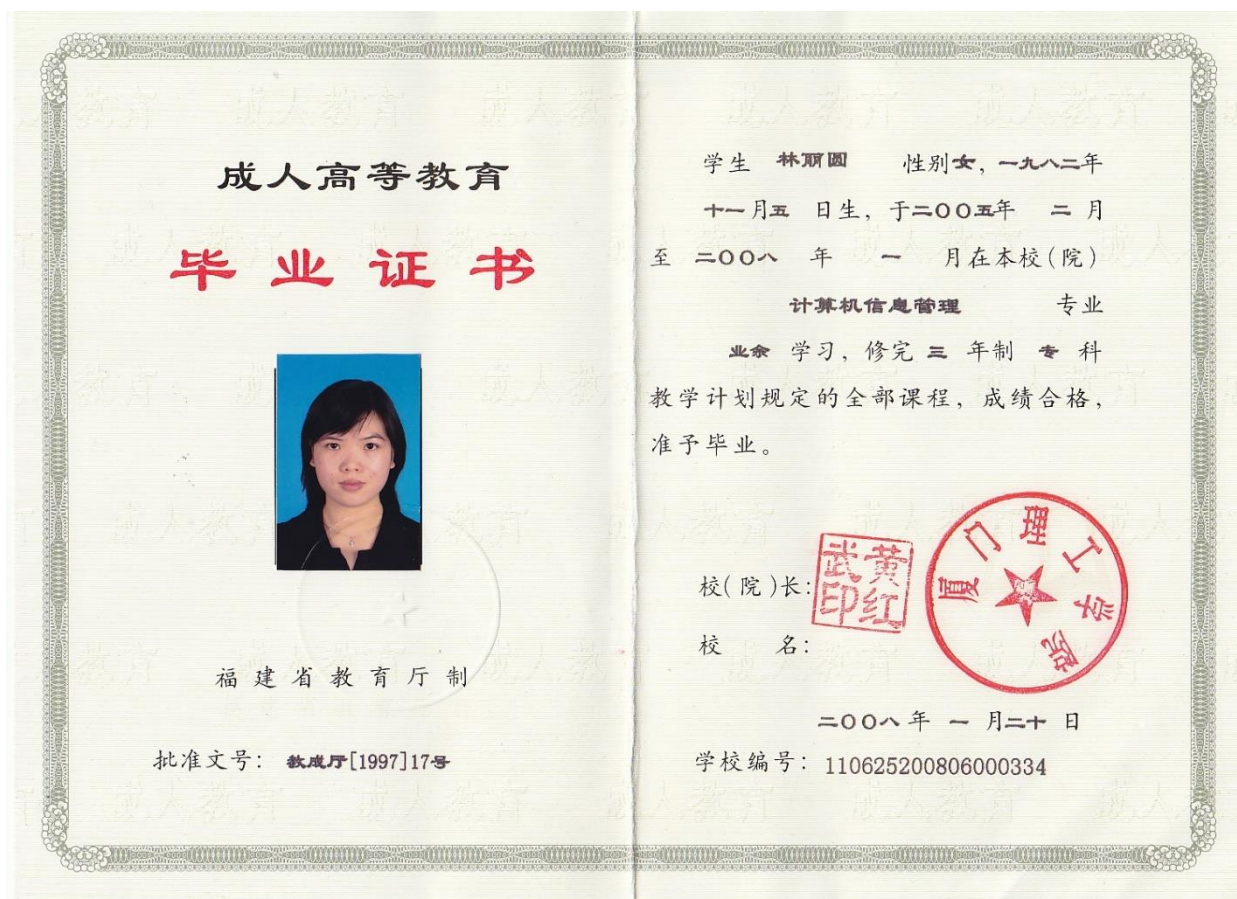 成人高等教育
毕业证书
福建省教育厅制
批准文号：教成厅[1997]17号
学生 林丽圆 性别女，一九八二年
十一月五 日生，于二〇〇五年 二 月
至 二〇〇八 年 一 月在本校（院）
计算机信息管理 专业
业余 学习，修完 三 年制 专 科
教学计划规定的全部课程，成绩合格，
准予毕业。
校（院）长：
黄红武印
校 名：
厦门理工学院
二〇〇八年 一 月二十 日
学校编号：110625200806000334